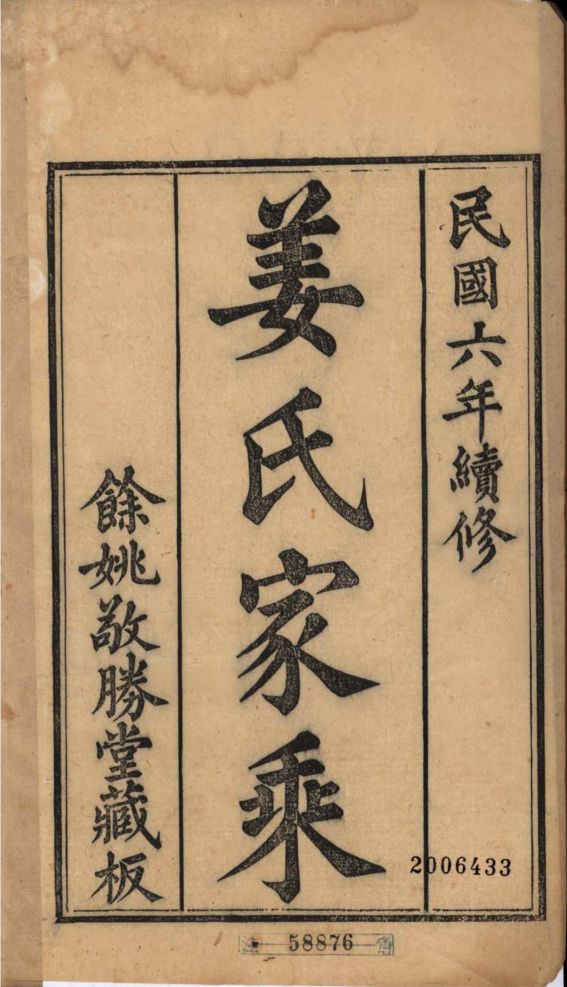 民國六年續修
姜氏家乘
餘姚敬勝堂藏板
2006433
58876